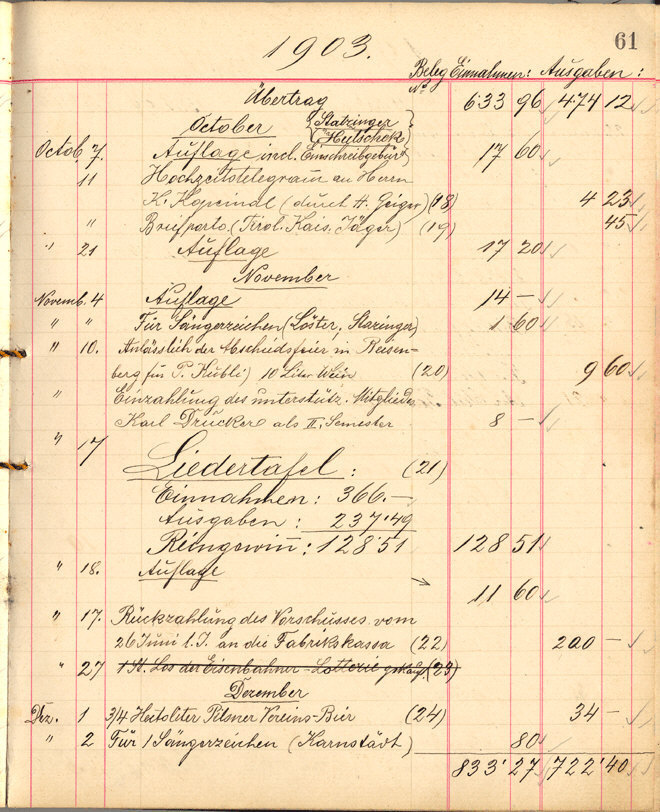 61
1903.
Beleg No. Einnahmen: Ausgaben:
Übertrag 633 96 474 12
October {Statzinger
{Hutschek}
Octob. 7. Auflage incl. Einschreibgebür 17 60
11 Hochzeitstelegram an Herrn
K. (durch A. Geiger) (18) 4 23
" Briefporto (Tirol. Kais. Jäger) (19) 45
" 21 Auflage 17 20
November
Novemb. 4 Auflage 14 —
" " Für Sängerzeichen (Löster, Stazinger) 1 60
" 10. Anlässlich der Abschiedsfeier in Reisen-
berg (für P. Hübli) 10 Liter Wein (20) 9 60
" Einzahlung des unterstütz. Mitgliedes
Karl Drucker als II. Semester 8 —
" 17 Liedertafel: (21)
Einnahmen: 366.—
Ausgaben: 237'49
Reingewinn: 128'51 128 51
" 18. Auflage 11 60
" 17. Rückzahlung des Vorschusses vom
26 Juni l. J. an die Fabrikskassa (22) 200 —
" 27 1 St. Los der Eisenbahner-Lotterie gekauft (23)
Dezember
Dez. 1 3/4 Hectoliter Pilsner Vereins-Bier (24) 34 —
" 2 Für 1 Sängerzeichen (Karnstädt) 80
833'27 722'40